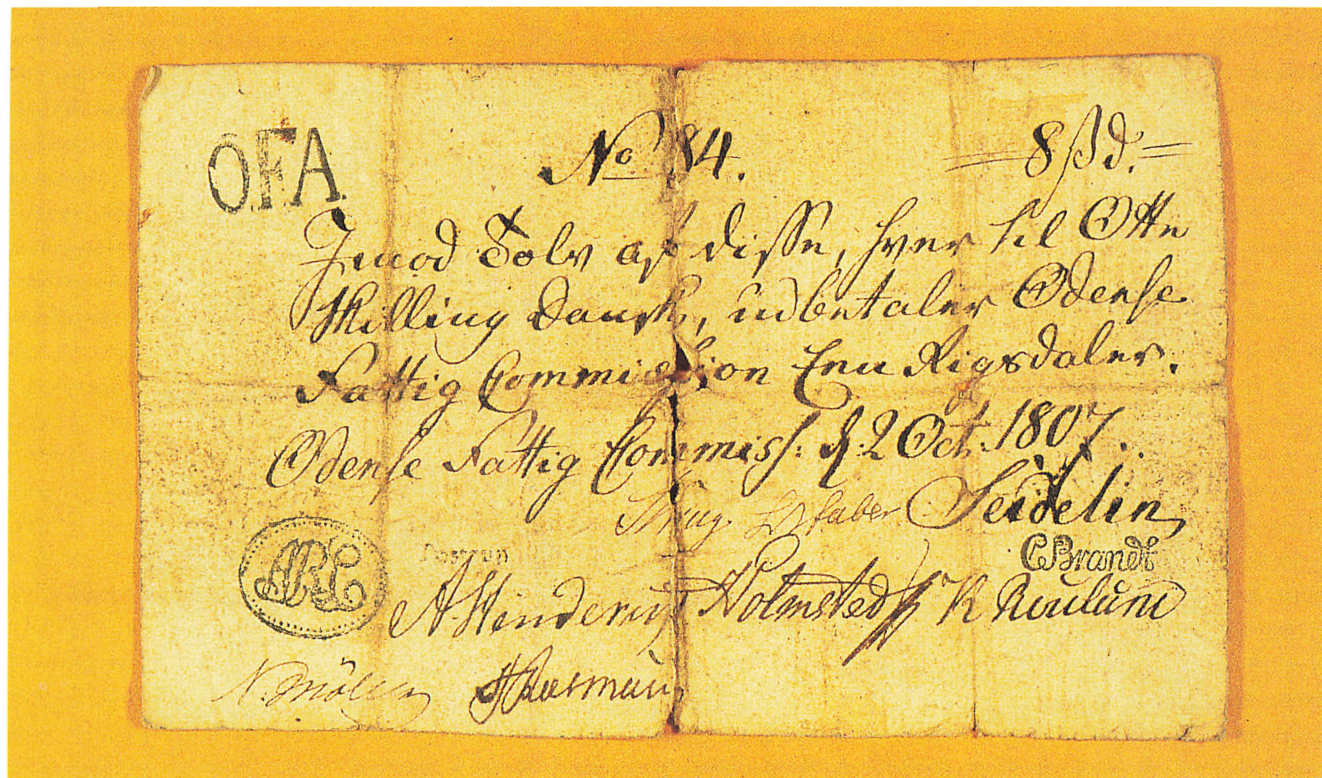 OFA
No 84.
8 ß d.
Imod Tolv af disse, hver til Otte
Skilling Dansk, udbetaler Odense
Fattig Commission Een Rigsdaler.
Odense Fattig Commiss: d. 2 Oct. 1807.
Krag Faber Seidelin
C Brandt
Holmsted
N. Möller